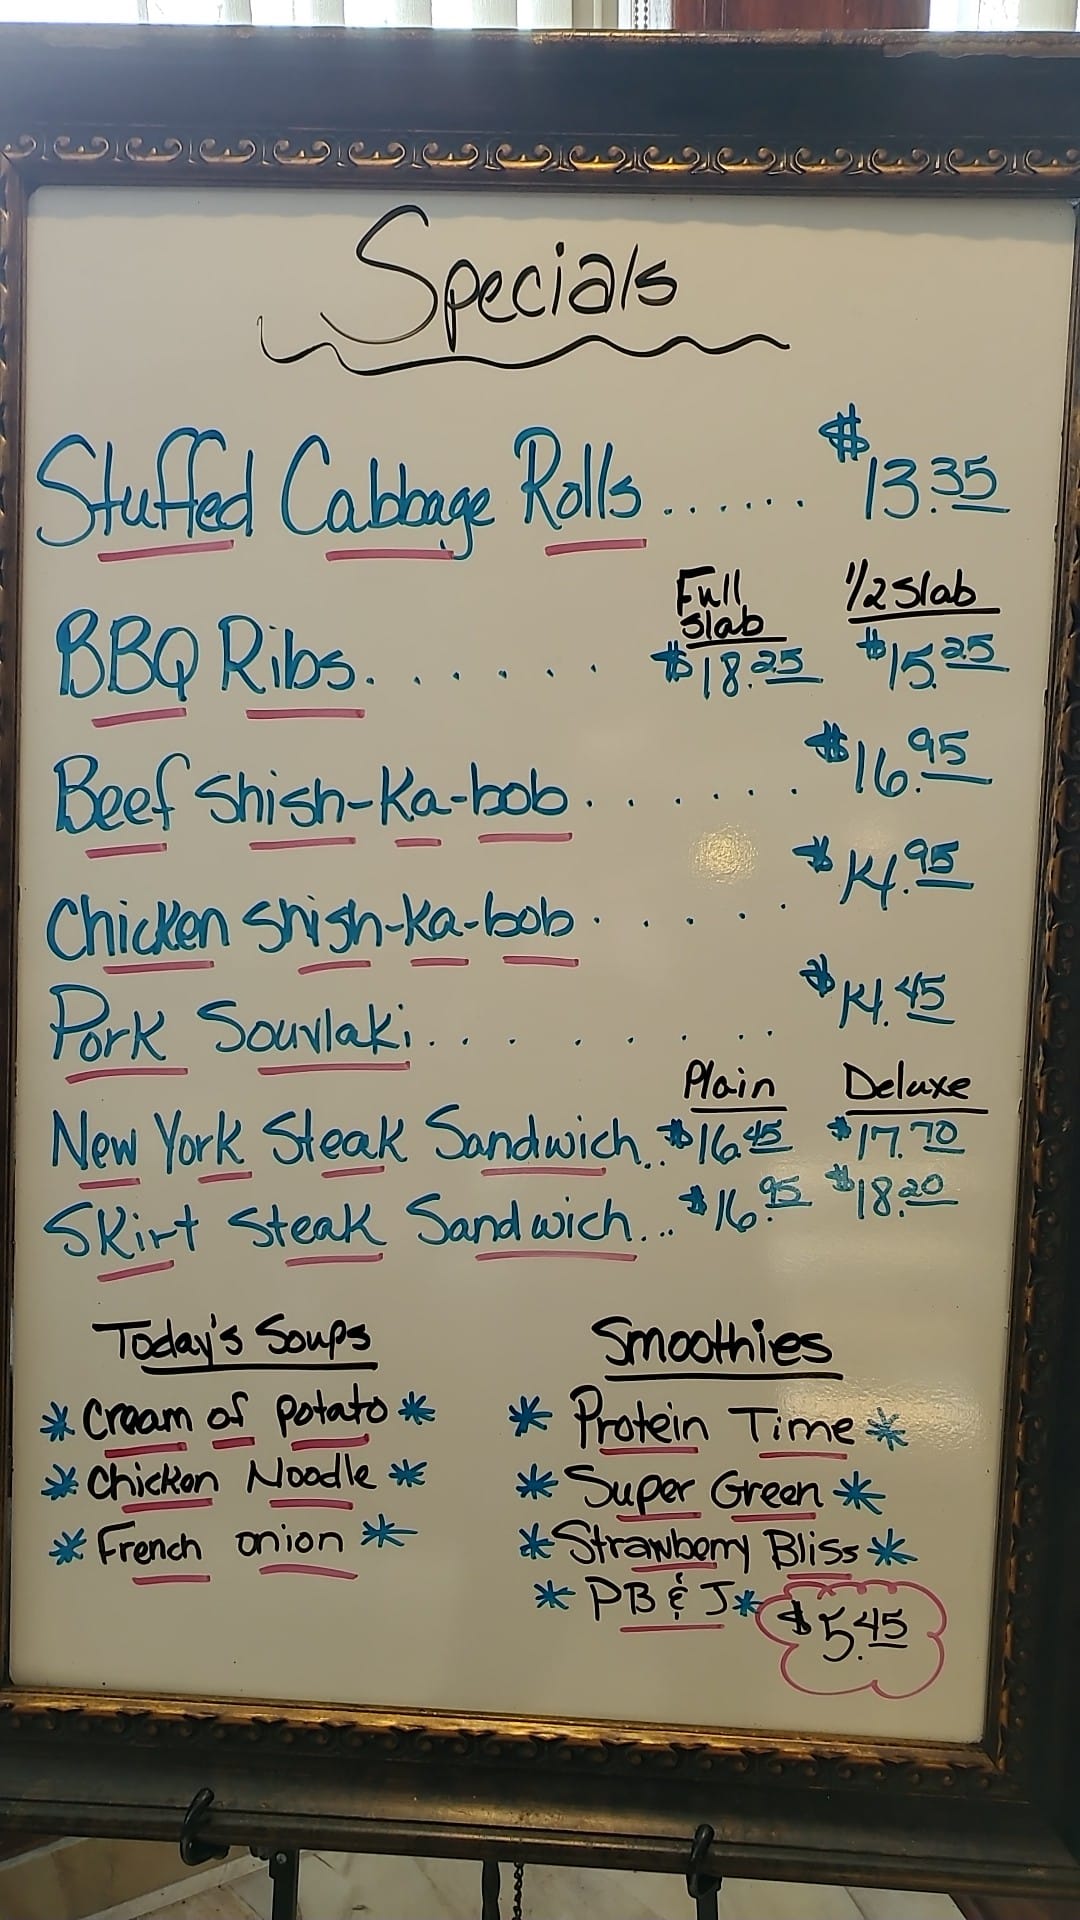 Specials
Stuffed Cabbage Rolls ...... $13.35
Full slab 1/2 slab
BBQ Ribs....... $18.25 $15.25
Beef Shish-Ka-bob ....... $16.95
Chicken Shish-Ka-bob ...... $14.95
Pork Souvlaki........ $14.45
Plain Deluxe
New York Steak Sandwich.. $16.45 $17.70
Skirt Steak Sandwich... $16.95 $18.20
Today's Soups
* Cream of potato *
* Chicken Noodle *
* French onion *
Smoothies
* Protein Time *
* Super Green *
* Strawberry Bliss *
* PB & J *
$5.45